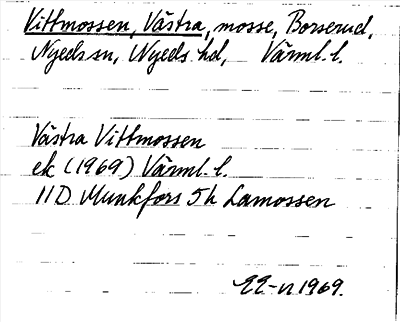 Vittmossen, Västra, mosse, Borserud,
Nyeds sn, Nyeds hd, Värml. l.
Västra Vittmossen
ek (1969) Värml. l.
11D Munkfors 5h Lamossen
1969.